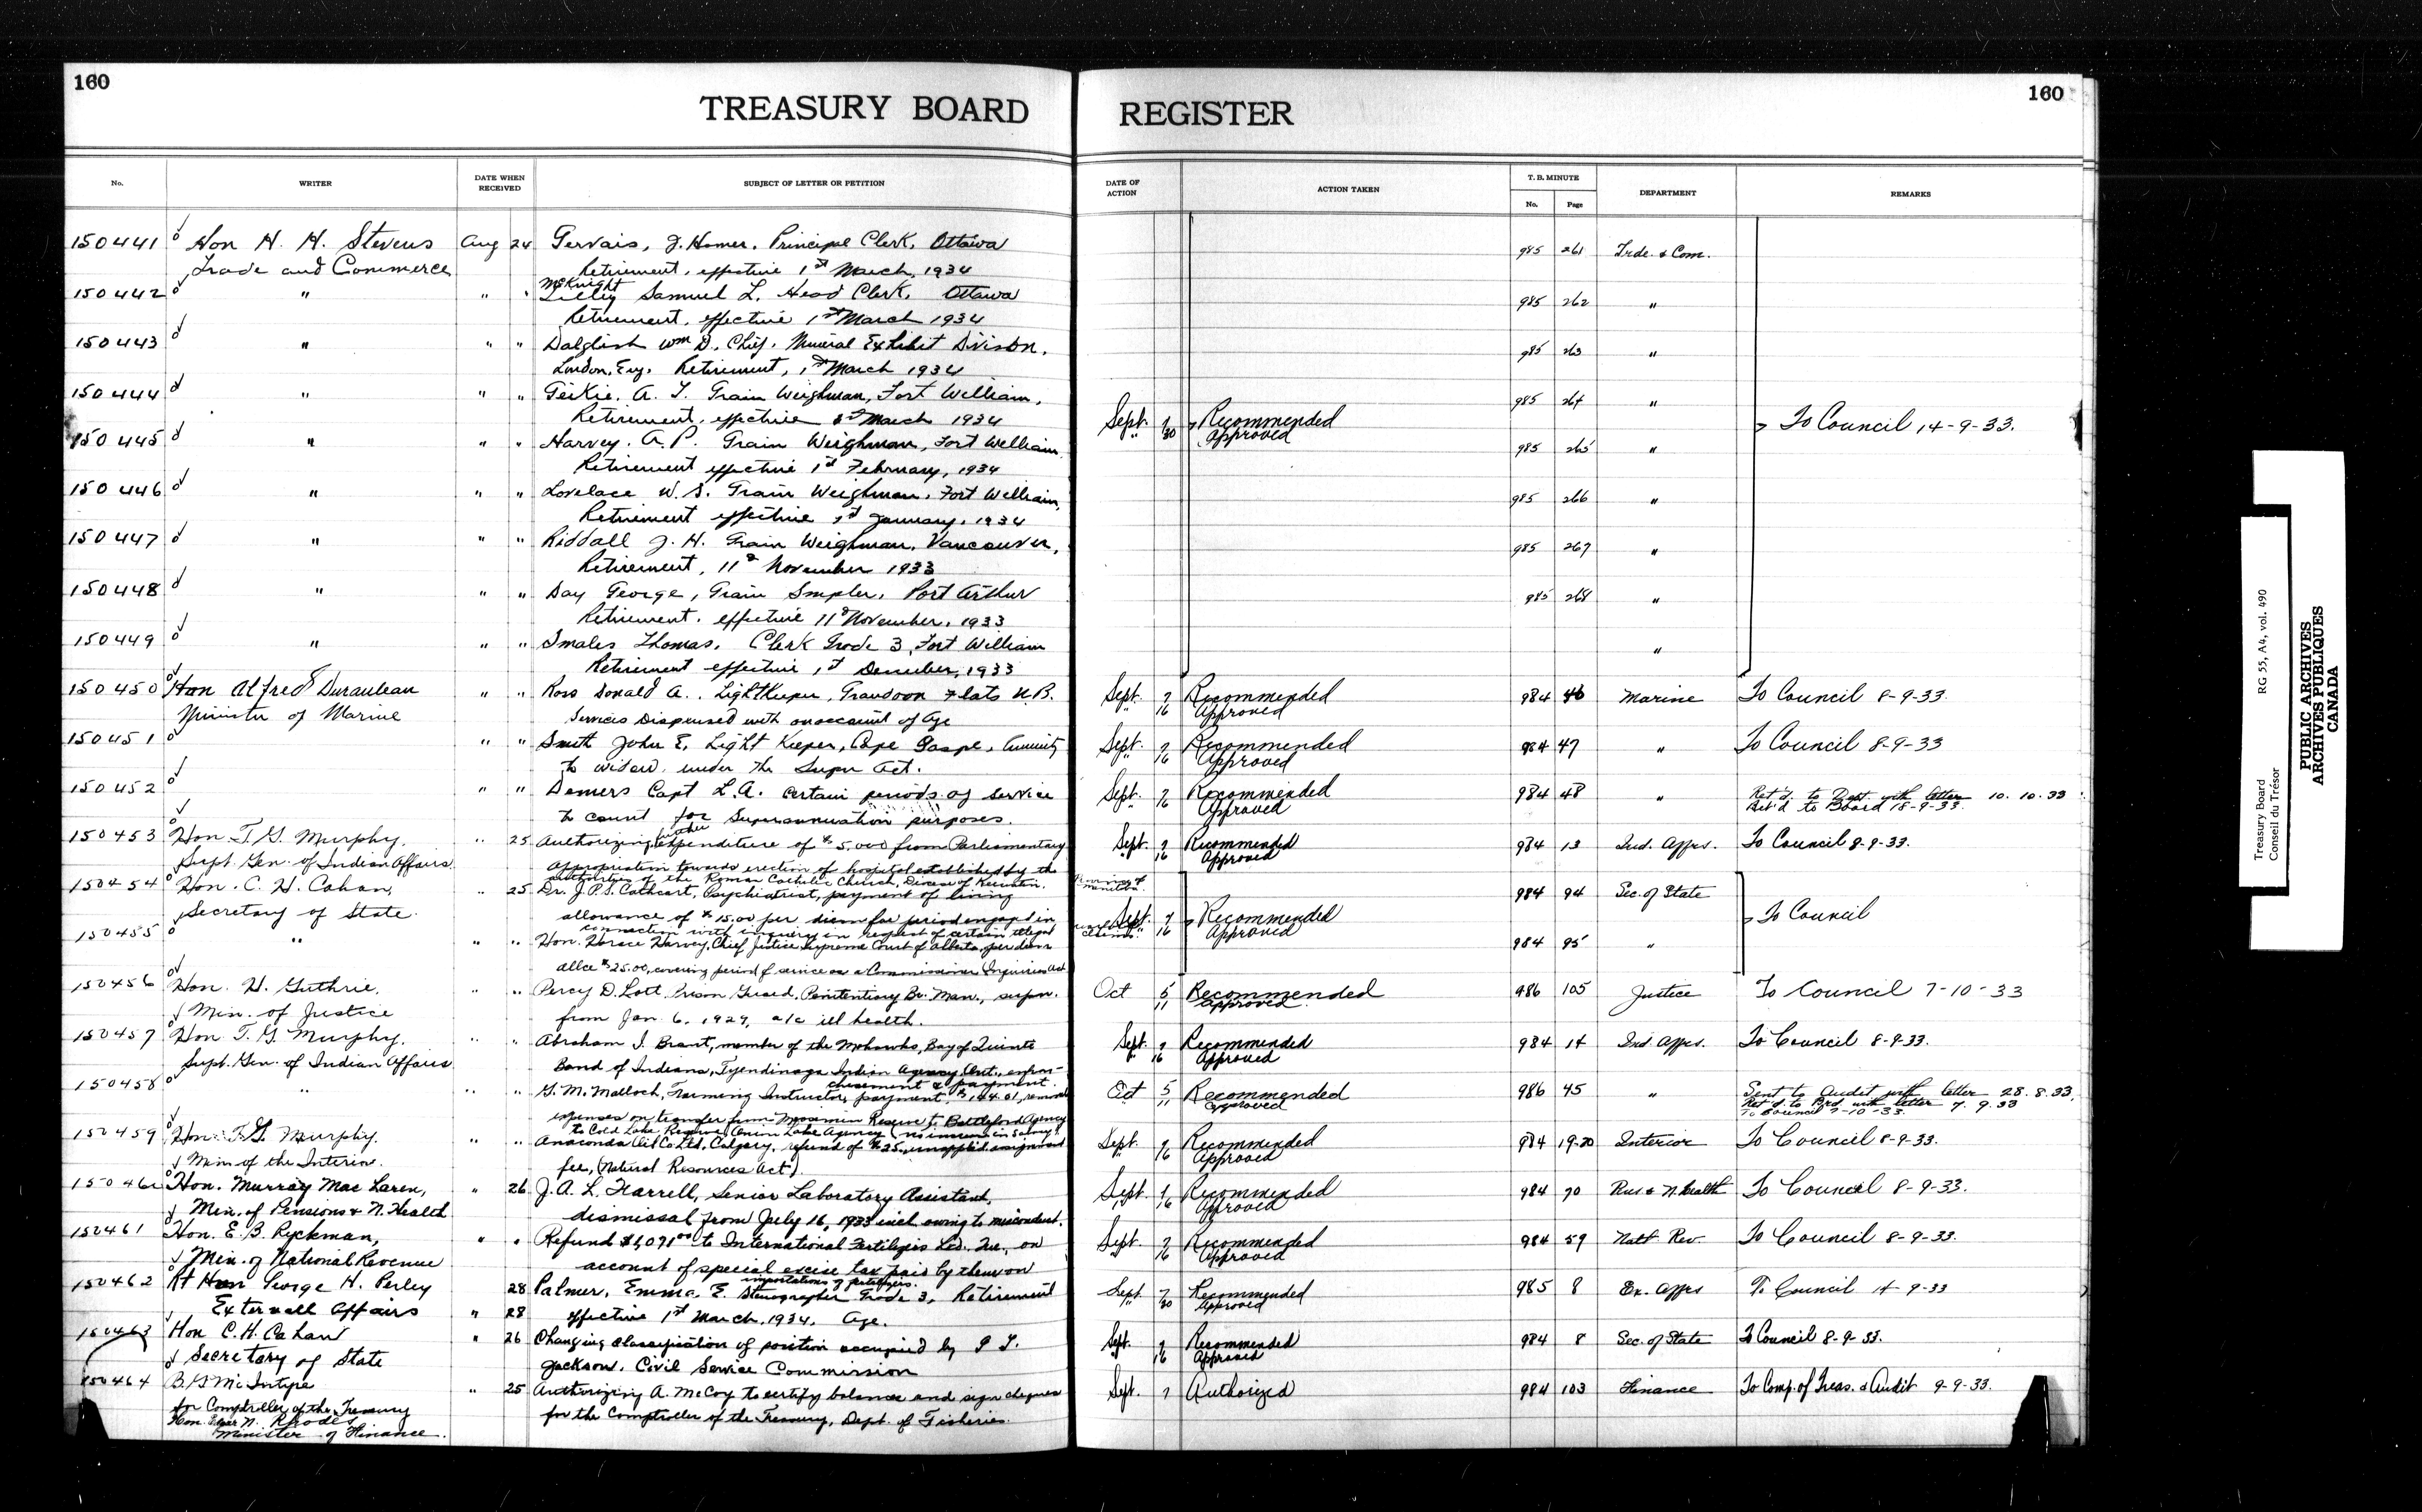 160
160
TREASURY BOARD REGISTER
No. WRITER DATE WHEN RECEIVED SUBJECT OF LETTER OR PETITION DATE OF ACTION ACTION TAKEN T. B. MINUTE No. Page DEPARTMENT REMARKS
150441 Hon H. H. Stevens Aug 24 Gervais, J. Homer, Principal Clerk, Ottawa 985 261 Trde. & Com.
Trade and Commerce Retirement, effective 1st March, 1934
McKnight
150442 " " " Samuel L. Head Clerk, Ottawa 985 262 "
Retirement, effective 1st March 1934
150443 " " " Dalglish Wm D. Chief, Mineral Exhibit Division, 985 263 "
London, Eng. Retirement, 1st March 1934
150444 " " " Geikie, A. T. Grain Weighman, Fort William, 985 264 "
Retirement, effective 1st March 1934 Sept. 7 Recommended To Council 14-9-33.
" 30 Approved
150445 " " " Harvey, A. P. Grain Weighman, Fort William 985 265 "
Retirement effective 1st February, 1934
150446 " " " Lovelace W. S. Grain Weighman, Fort William, 985 266 "
Retirement effective 1st January, 1934
150447 " " " Riddall J. H. Grain Weighman, Vancouver, 985 267 "
Retirement, 11th November 1933
150448 " " " Day George, Grain Smpler, Port Arthur 985 268 "
Retirement, effective 11th November, 1933
150449 " " " Smales Thomas, Clerk Grade 3, Fort William "
Retirement effective 1st December, 1933
150450 Hon Alfred Duranleau " " Ross Donald A., Lightkeeper, Grandoon Flats N.B. Sept. 7 Recommended 984 46 Marine To Council 8-9-33.
Minister of Marine Services Dispensed with on account of Age " 16 Approved
150451 " " Smith John E. Light Keeper, Cape Gaspe, Annuity Sept. 7 Recommended 984 47 " To Council 8-9-33
to widow under the Supn Act. " 16 Approved
150452 " " Demers Capt L.A. certain periods of service Sept. 7 Recommended 984 48 " Ret'd. to Dept. with letter 10.10.33
to count for Superannuation purposes. " 16 Approved Ret'd to Board 18-9-33
150453 Hon T. G. Murphy, " 25 Authorizing further expenditure of $5,000 from Parliamentary Sept. 7 Recommended 984 13 Ind. Affrs. To Council 8-9-33.
Supt. Gen. of Indian Affairs. appropriation towards erection of hospital established by the 16 Approved
authorities of the Roman Catholic Church, Diocese of Keewatin, Province of Manitoba.
150454 Hon. C. H. Cahan, " 25 Dr. J.P.S. Cathcart, Psychiatrist, payment of living 984 94 Sec. of State
Secretary of State. allowance of $15.00 per diem for period engaged in Sept. 7 Recommended To Council
connection with inquiry in respect of certain illegal " 16 Approved
150455 " " " Hon. Horace Harvey, Chief Justice Supreme Court of Alberta, per diem 984 95 "
allce $25.00, covering period of service as a Commissioner Inquiries Act
150456 Hon. H. Guthrie, " " Percy D. Lott, Prison Guard, Penitentiary Br. Man., supn. Oct 5 Recommended 986 105 Justice To Council 7-10-33
Min. of Justice from Jan 6, 1929, a/c ill health. 11 Approved
150457 Hon T. G. Murphy, " " Abraham J. Brant, member of the Mohawks, Bay of Quinte Sept. 7 Recommended 984 14 Ind. Affrs. To Council 8-9-33.
Supt. Gen. of Indian Affairs Band of Indians, Tyendinaga Indian Agency, Ont., enfran- 16 Approved
chisement & payment.
150458 " " " G. M. Malloch, Farming Instructor, payment $144.01, removal Oct 5 Recommended 986 45 " Sent to Audit with letter 28.8.33.
expenses on transfer from Moosomin Reserve to Battleford Agency 11 Approved Ret'd. to Brd. with letter 7.9.33
to Cold Lake Reserve, Onion Lake Agency (no increase in Salary). To Council 7-10-33
150459 Hon. T. G. Murphy, " " Anaconda Oil Co Ltd, Calgary, refund of $25, unapplied assignment Sept. 7 Recommended 984 19-20 Interior To Council 8-9-33.
Min of the Interior. fee, (Natural Resources Act). " 16 Approved
150460 Hon. Murray Mac Laren, " 26 J. A. L. Farrell, Senior Laboratory Assistant, Sept. 7 Recommended 984 70 Pens & N. Health To Council 8-9-33.
Min. of Pensions & N. Health dismissal from July 16, 1933 incl. owing to misconduct. " 16 Approved
150461 Hon. E. B. Ryckman, " " Refund $1,071.00 to International Fertilizers Ltd. Que., on Sept. 7 Recommended 984 59 Natl. Rev. To Council 8-9-33.
Min. of National Revenue account of special excise tax paid by them on " 16 Approved
importations of fertilizers.
150462 Rt Hon George H. Perley 28 Palmer, Emma, E. Stenographer Grade 3, Retirement Sept 7 Recommended 985 8 Ex. Affrs To Council 14-9-33
External Affairs " 28 effective 1st March, 1934, Age. " 30 Approved
150463 Hon C. H. Cahan " 26 Changing classification of position occupied by Sept. 7 Recommended 984 8 Sec. of State To Council 8-9-33.
Secretary of State Jackson, Civil Service Commission 16 Approved
150464 B. G McIntyre " 25 Authorizing A. McCoy to certify balance and sign cheques Sept. 7 Authorized 984 103 Finance To Comp. of Treas. & Audit 9-9-33.
for Comptroller of the Treasury for the Comptroller of the Treasury, Dept. of Fisheries.
Hon. Edgar N. Rhodes
Minister of Finance.
Treasury Board RG 55, A4, vol. 490
Conseil du Trésor
PUBLIC ARCHIVES
ARCHIVES PUBLIQUES
CANADA